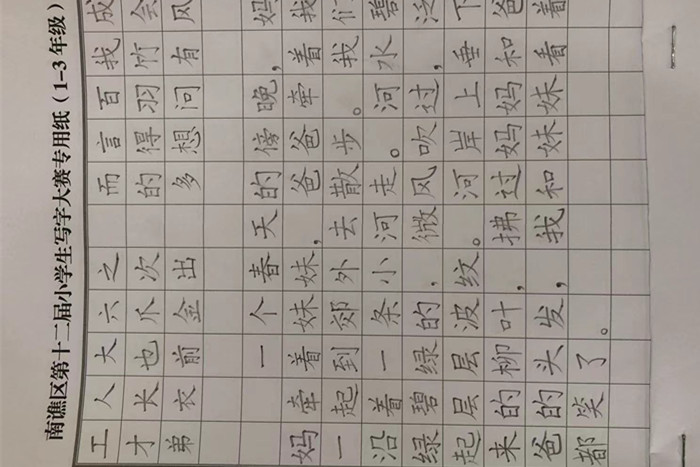 南谯区第十二届小学生写字大赛专用纸（1-3年级）
工人大六之 而言百我成
才长也爪次 的得羽竹会
弟衣前金出 多想问有风
一个春天的傍晚，妈
妈牵着妹妹，爸爸牵着我
一起到郊外去散步。我们
沿着一条小河走。河水碧
绿碧绿的，微风吹过，泛
起层层波纹。河岸上垂下
来的柳叶，拂过妈妈和爸
爸的头发，我和妹妹看着
都笑了。